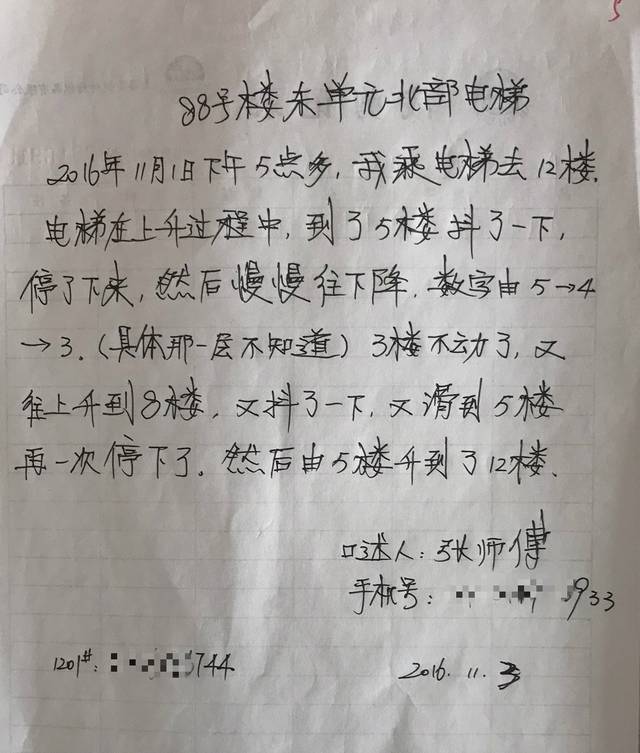 88号楼东单元北部电梯
2016年11月1日下午5点多,我乘电梯去12楼.
电梯在上升过程中,到了5楼抖了一下,
停了下来,然后慢慢往下降.数字由5→4
→3.(具体那一层不知道)3楼不动了,又
往上升到8楼,又抖了一下,又滑到5楼
再一次停下了.然后由5楼升到了12楼.
口述人:张师傅
手机号: 933
1201#: 744
2016.11.3
5